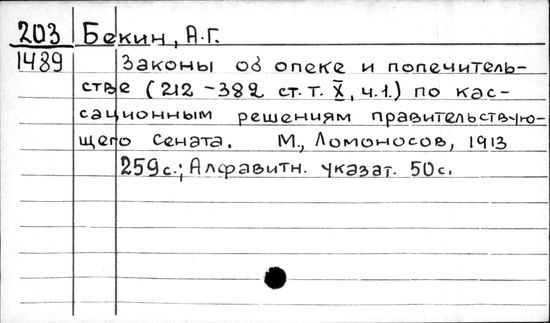 203 Бекин, А.Г.
1489 Законы об опеке и попечитель-
стве (212 – 382 ст. т. X, ч.1.) по кас-
сационным решениям правительствую-
щего Сената. М., Ломоносов, 1913
259с.; Алфавитн. указат. 50с.